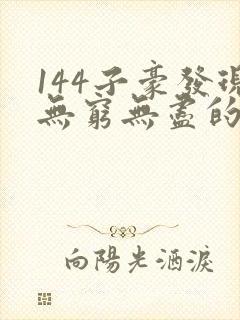 144子豪發現
無窮無盡的
向陽光酒淚